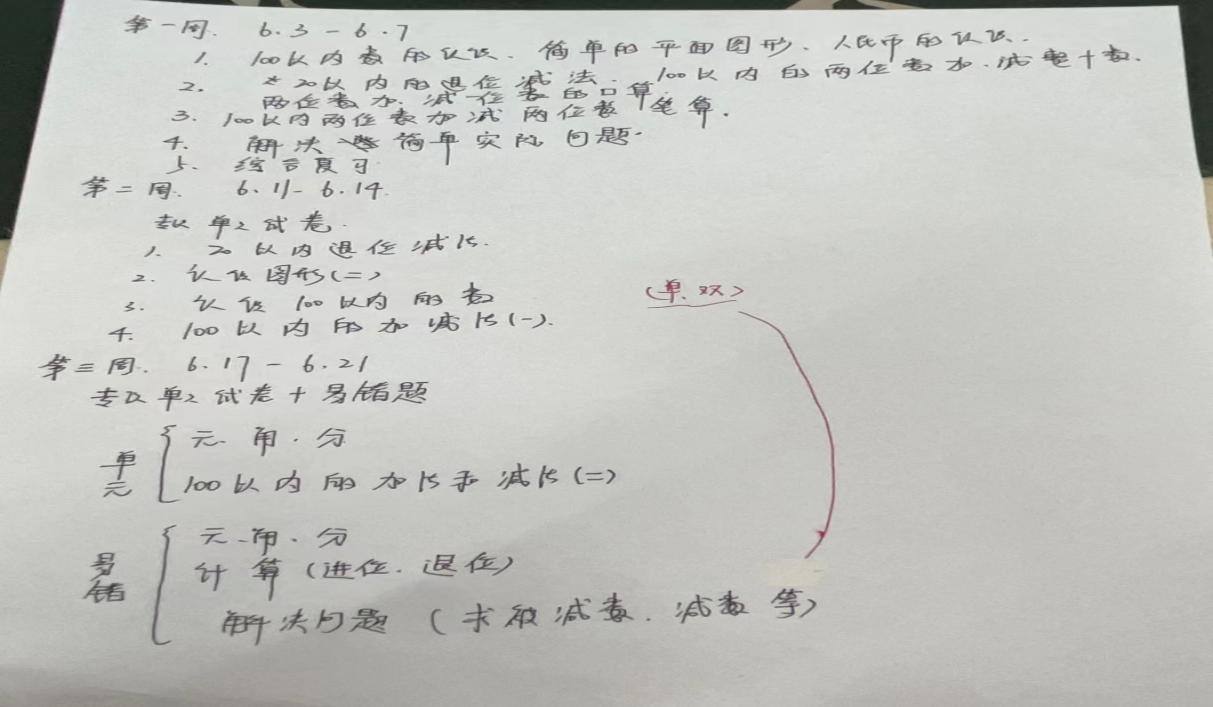 第一周. 6.3-6.7
1. 100以内数的认识. 简单的平面图形、人民币的认识.
2. *20以内的退位减法. 100以内的两位数加.减整十数.
两位数加.减一位数的口算
3. 100以内两位数加减两位数笔算.
4. 解决简单实际问题.
5. 综合复习
第二周. 6.11-6.14.
专议单元试卷.
1. 20以内退位减法.
2. 认识图形(二)
3. 认识100以内的数
(单.双)
4. 100以内的加减法(一).
第三周. 6.17-6.21
专议单元试卷+易错题
单元
元.角.分
100以内的加法和减法(二)
易错
元.角.分
计算(进位.退位)
解决问题(求被减数.减数等)